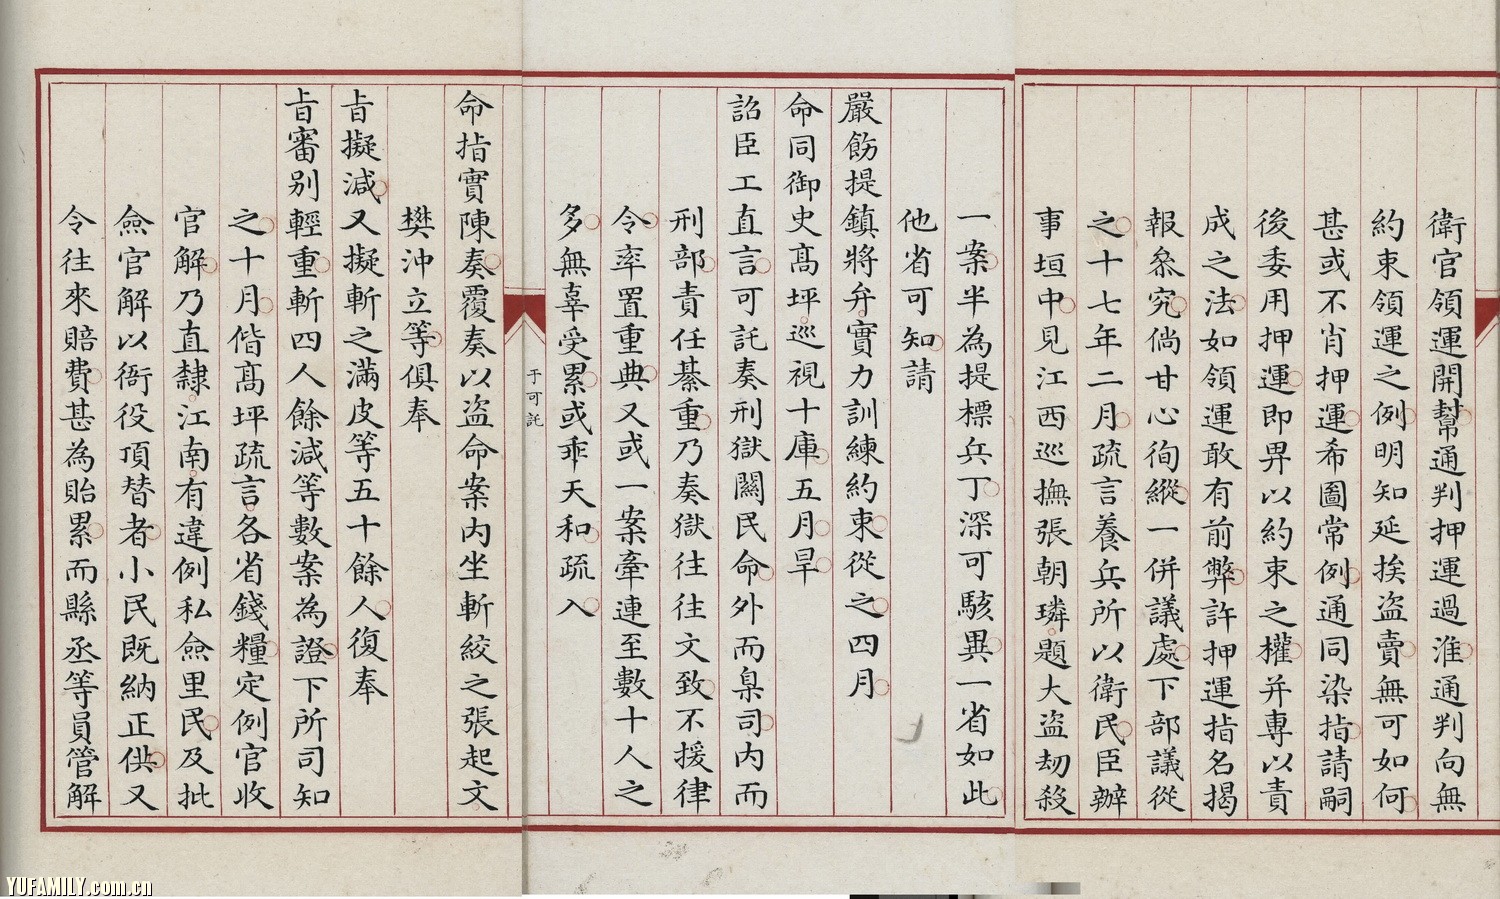 衛官領運開幫通判押運過淮通判向無
約束領運之例明知延挨盜賣無可如何
甚或不肖押運希圖常例通同染指請嗣
後委用押運即畀以約束之權并專以責
成之法如領運敢有前弊許押運指名揭
報叅究倘甘心徇縱一併議處下部議從
之十七年二月疏言養兵所以衛民臣辦
事垣中見江西巡撫張朝璘題大盜劫殺
一案半為提標兵丁深可駭異一省如此
他省可知請
嚴飭提鎮將弁實力訓練約束從之四月
命同御史高坪巡視十庫五月旱
詔臣工直言可託奏刑獄關民命外而臬司內而
刑部責任綦重乃奏獄往往文致不援律
令率置重典又或一案牽連至數十人之
多無辜受累或乖天和疏入
于可託
命指實陳奏覆奏以盜命案內坐斬絞之張起文
樊沖立等俱奉
旨擬減又擬斬之滿皮等五十餘人復奉
旨審別輕重斬四人餘減等數案為證下所司知
之十月偕高坪疏言各省錢糧定例官收
官解乃直隸江南有違例私僉里民及批
僉官解以衙役頂替者小民既納正供又
令往來賠費甚為貽累而縣丞等員管解
YUFAMILY.com.cn